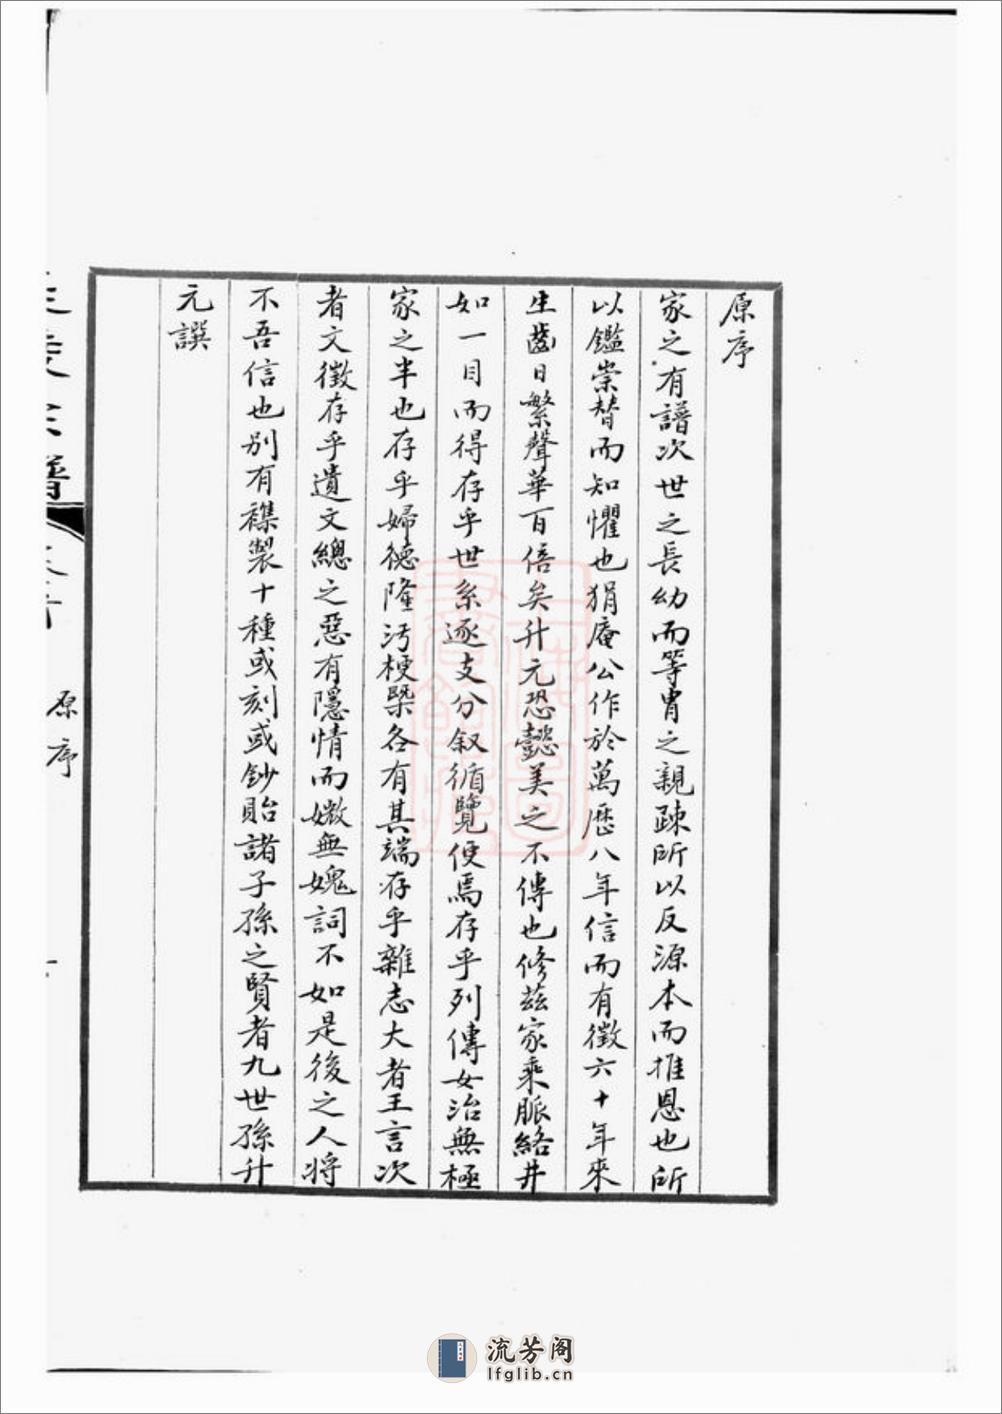 原序
家之有譜次世之長幼而等胄之親疎所以反源本而推恩也所
以鑑崇替而知懼也狷庵公作於萬歷八年信而有徵六十年來
生齒日繁聲華百倍矣升元恐懿美之不傳也修茲家乘脈絡井
如一目而得存乎世系逐支分叙循覽便焉存乎列傳女治無極
家之半也存乎婦德隆汚梗槩各有其端存乎雜志大者王言次
者文徵存乎遺文總之惡有隱情而媺無媿詞不如是後之人將
不吾信也別有襍製十種或刻或鈔貽諸子孫之賢者九世孫升
元譔
譜
原序
流芳阁
lfglib.cn